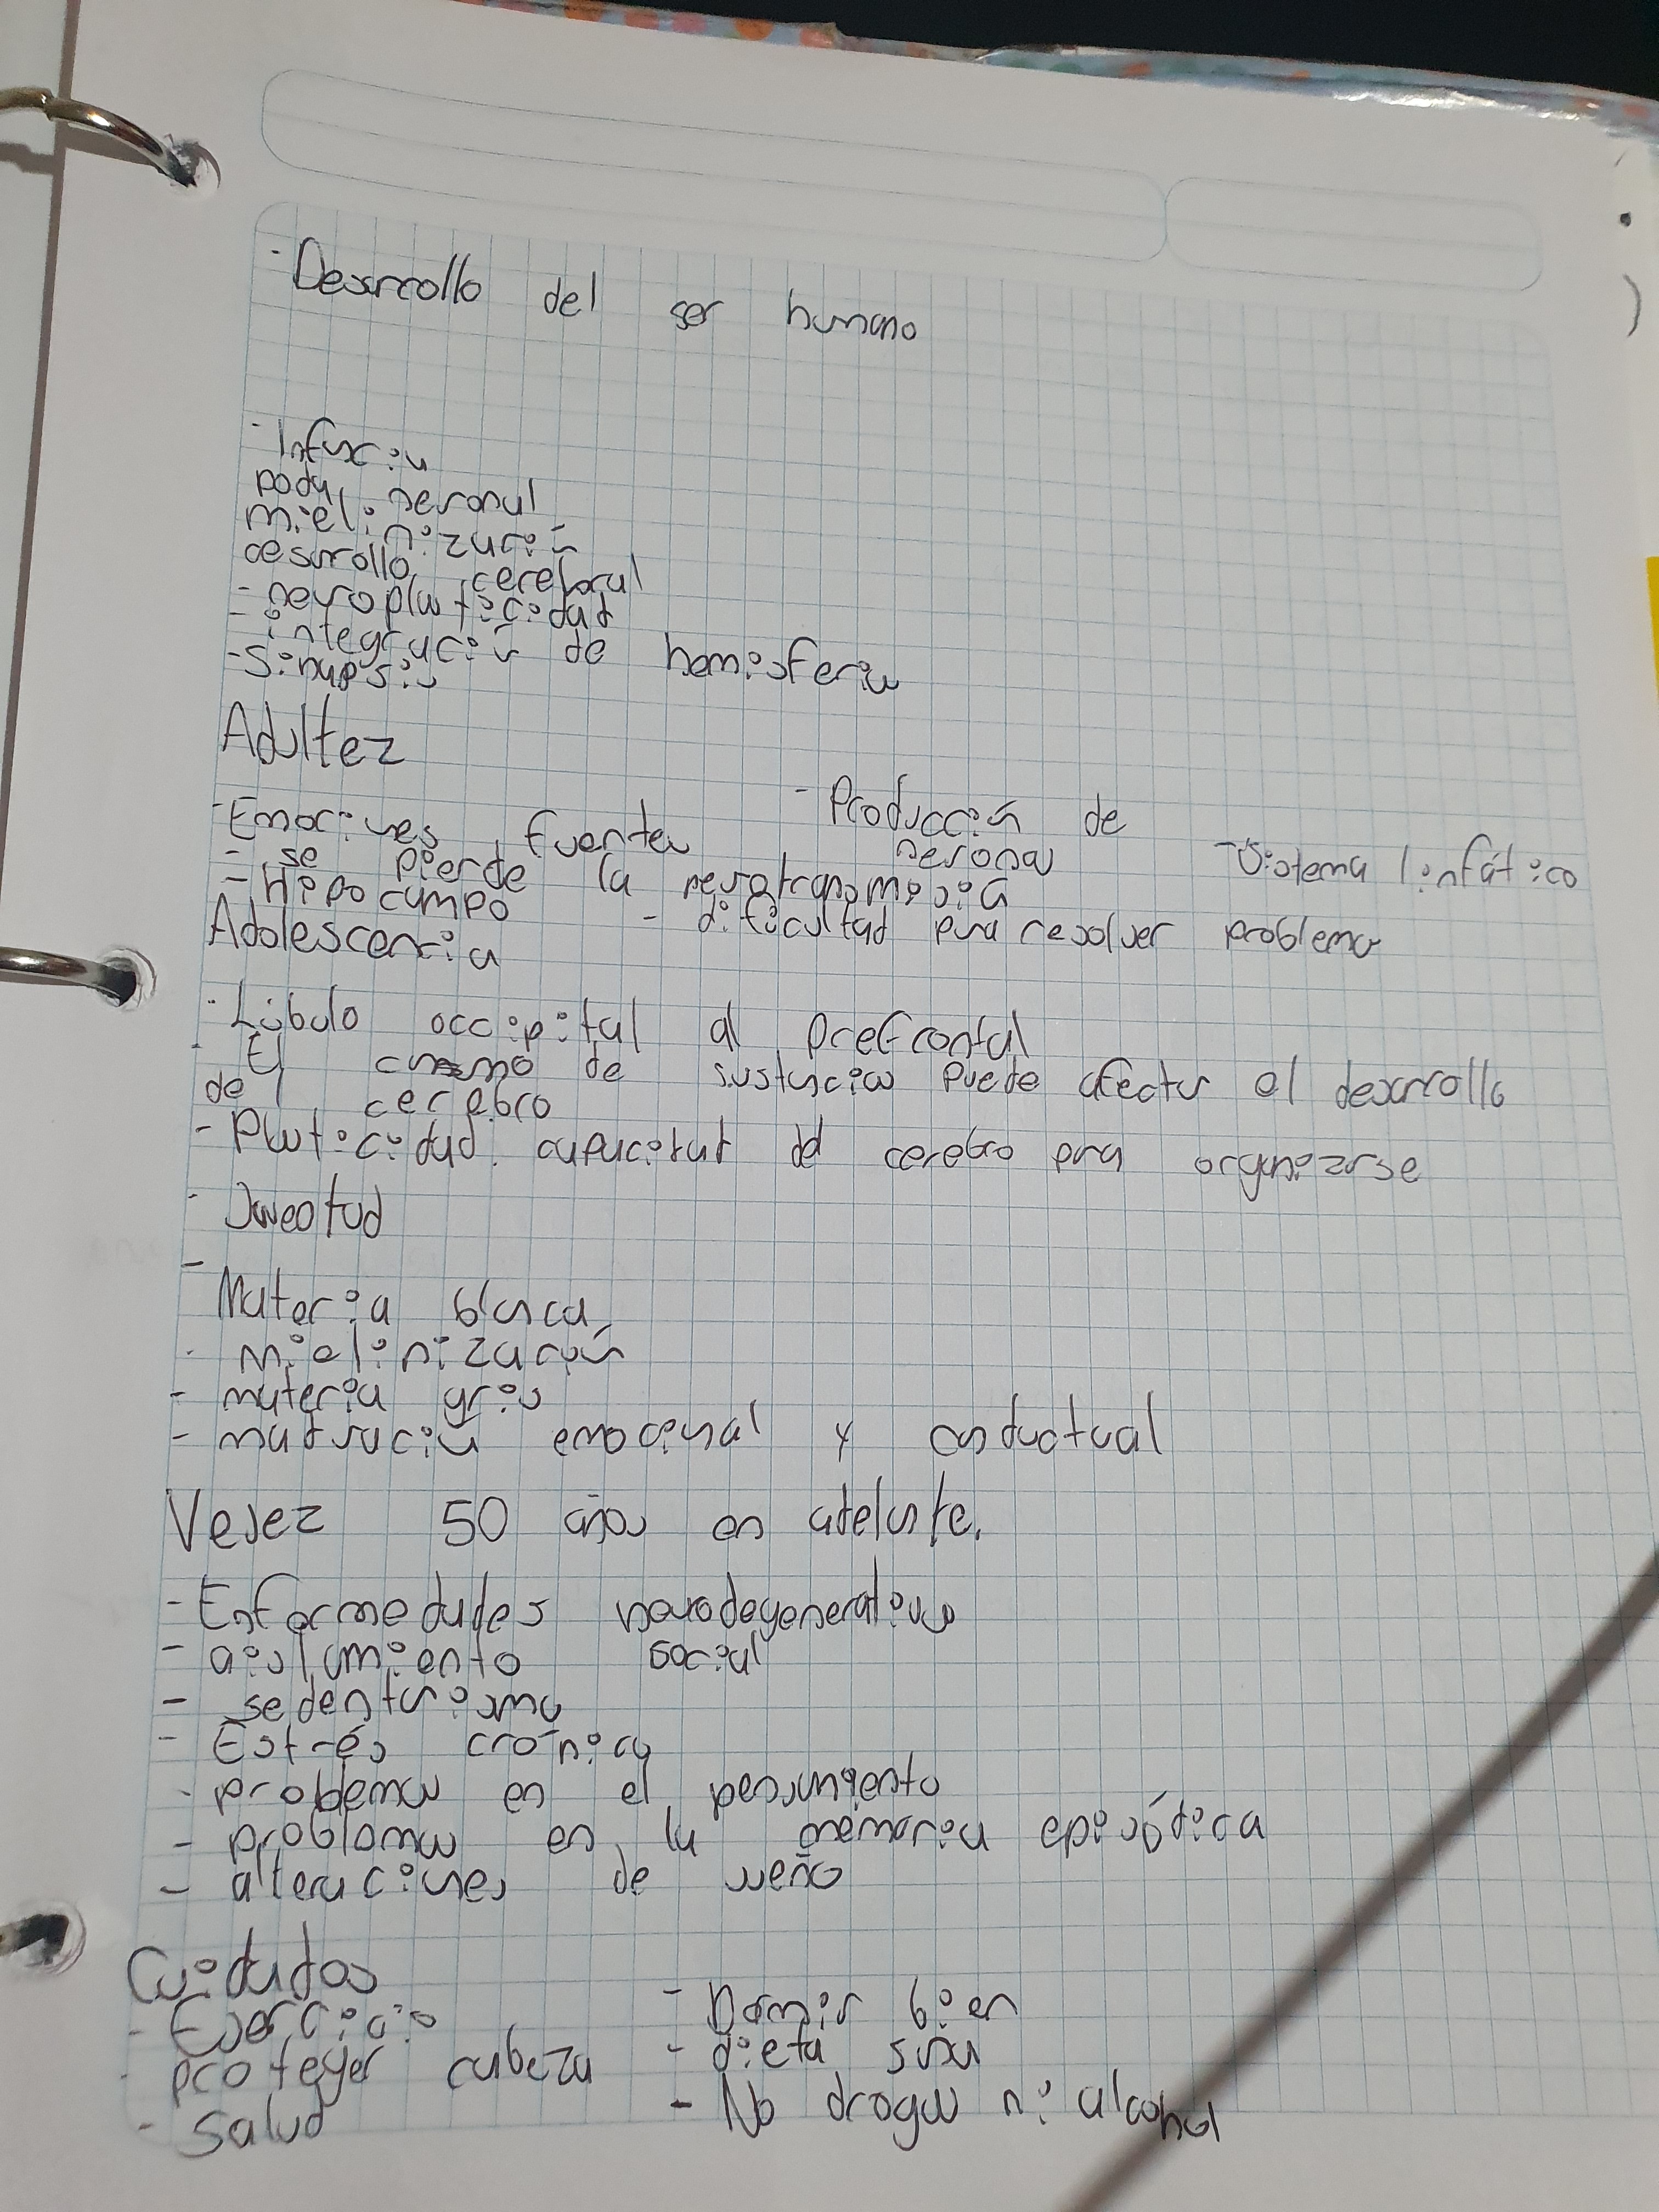 - Desarrollo del ser humano
- Infancia
poda neronal
mielinización
desarrollo cerebral
- neuroplasticidad
- integración de hemisferias
- Sinapsis
Adultez
- Emociones fuentes
- Producción de neronas
- Sistema linfático
- se pierde la neurotransmisión
- Hipocampo
- dificultad para resolver problemas
Adolescencia
- Lóbulo occipital al prefrontal
- El de sustancias puede afectar el desarrollo
del cerebro
- Plasticidad. capacidad del cerebro para organizarse
- Juventud
-
Materia blanca
- mielinización
- materia gris
- maduración emocional y conductual
Vejez 50 años en adelante.
- Enfermedades neurodegenerativas
- aislamiento social
- sedentarismo
- Estrés crónico
- problemas en el pensamiento
- problemas en la memoria episódica
- alteraciones de sueño
Cuidados
- Ejercicio
- Dormir bien
- proteger cabeza
- dieta sana
- Salud
- No drogas ni alcohol